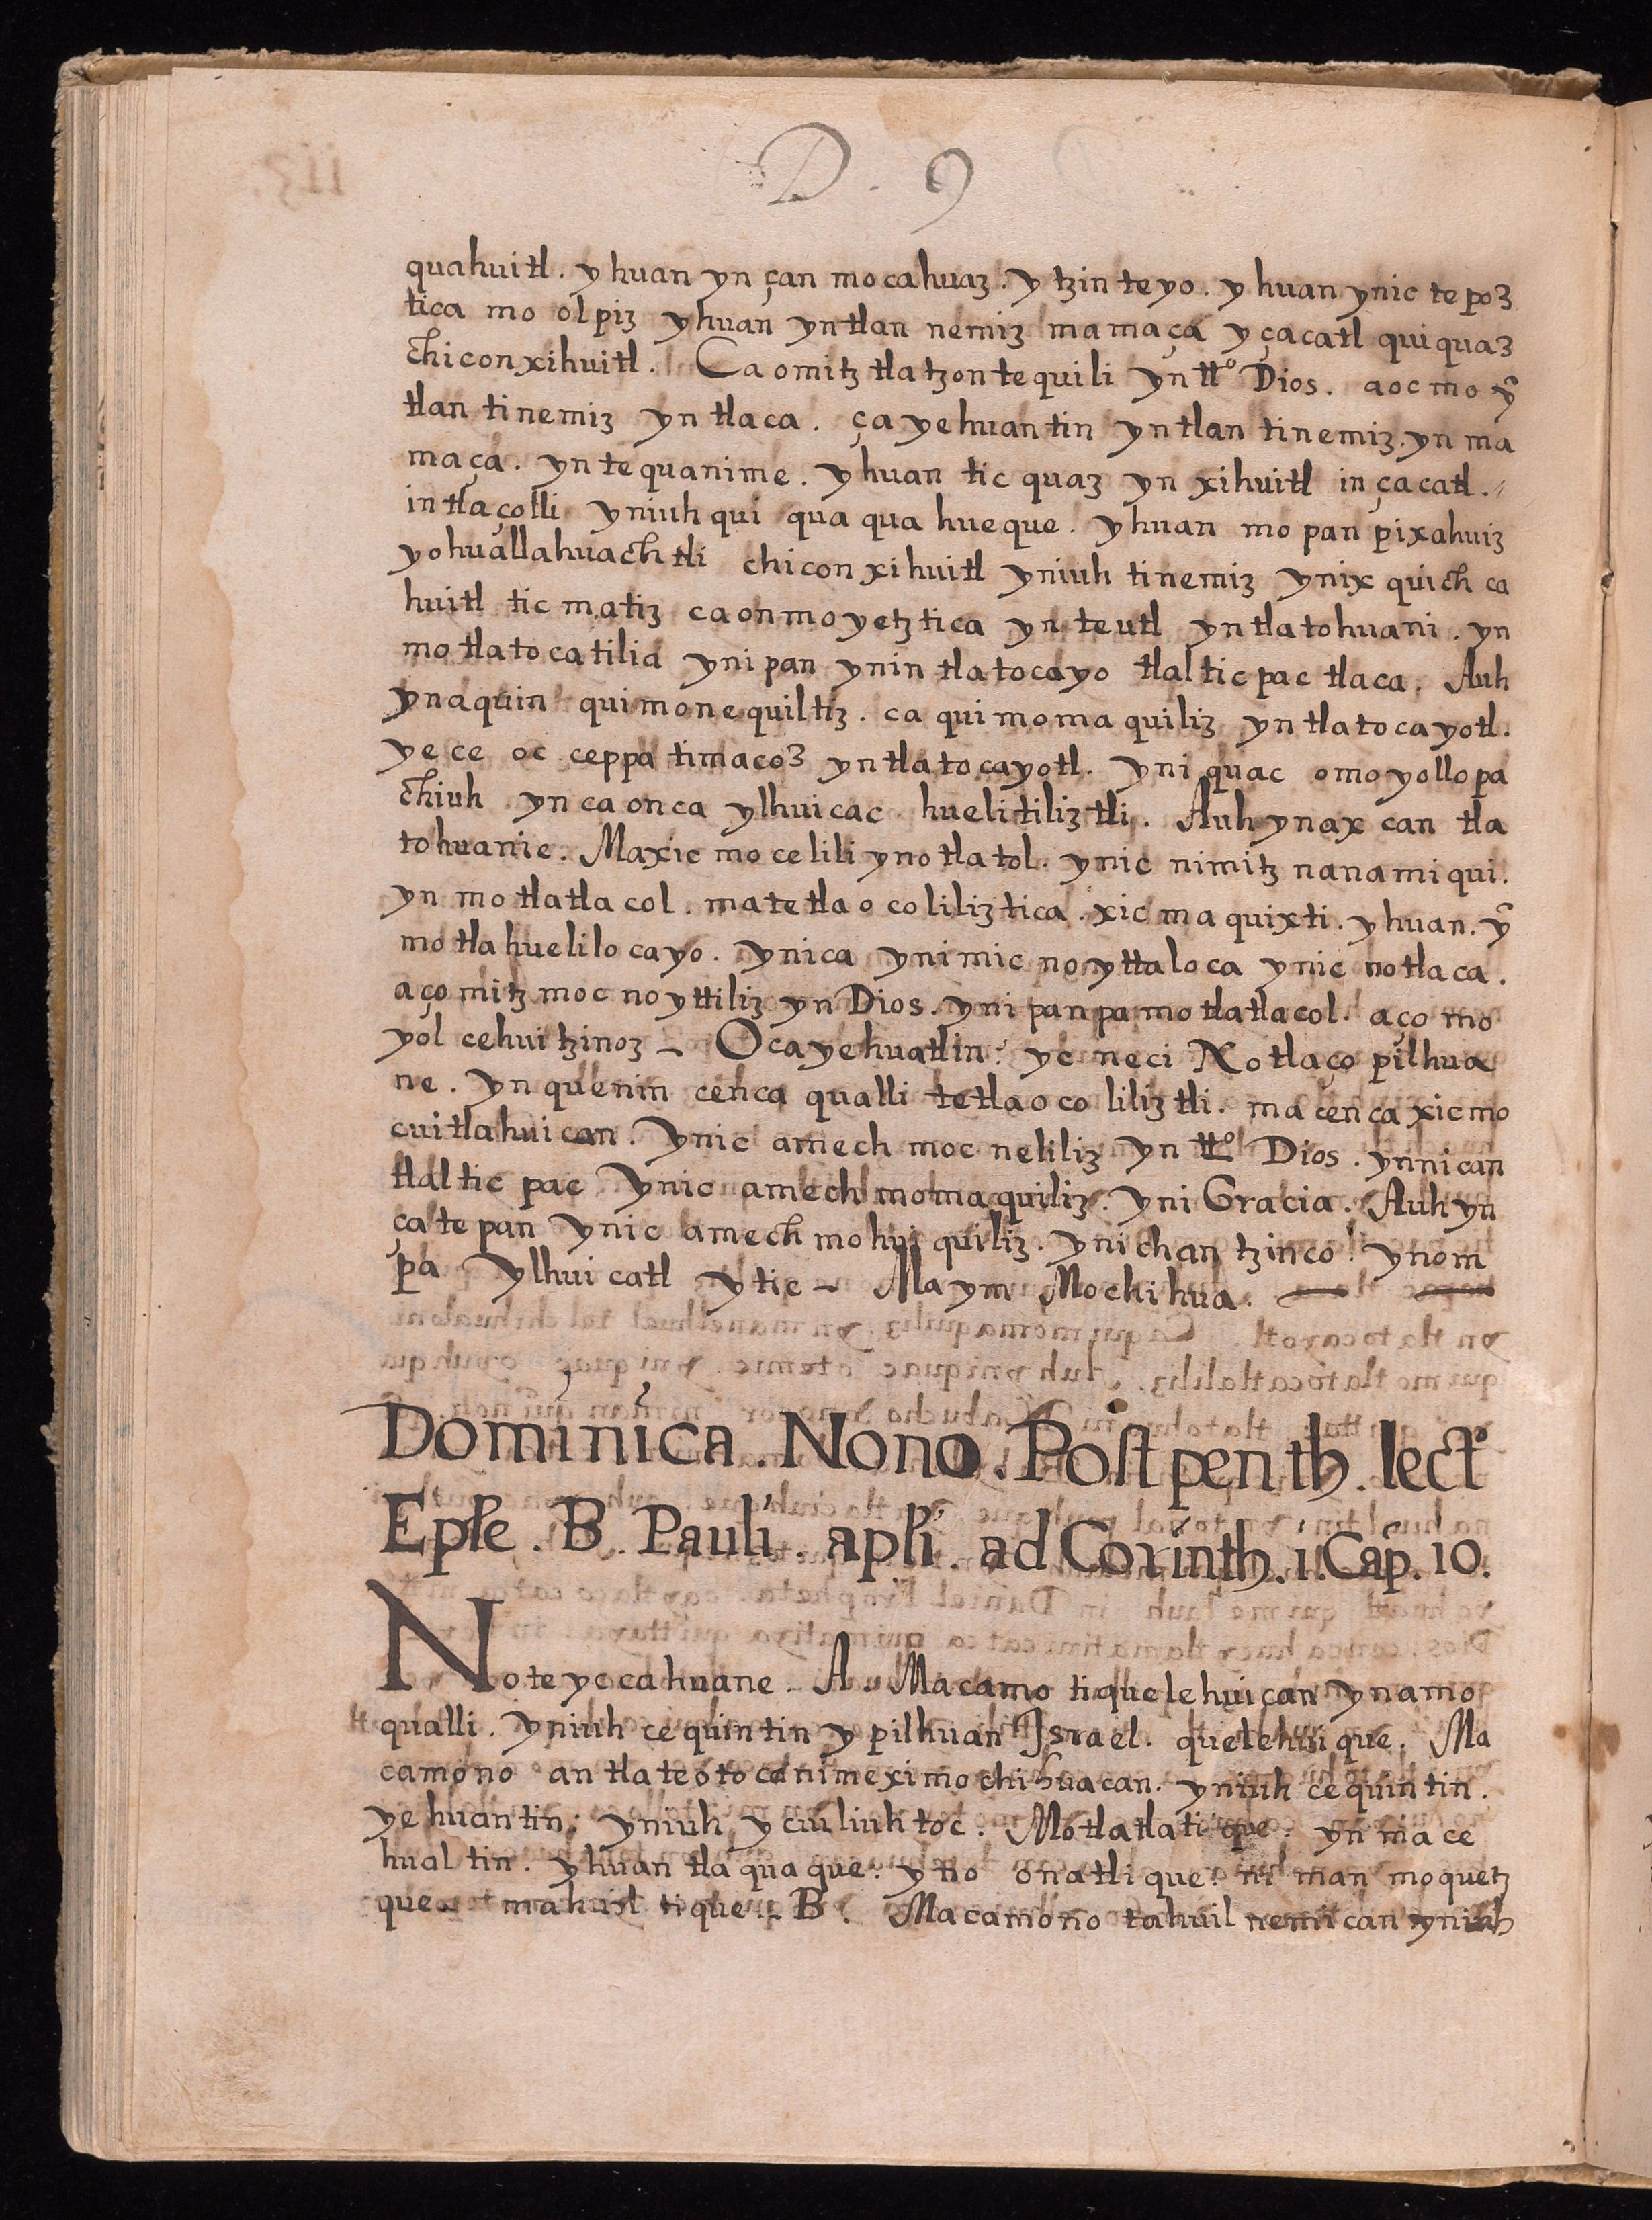 D. 9
quahuitl. y huan yn çan mo cahuaz. y tzin te yo. y huan ynic te poz
tica mo ol piz yhuan yn tlan nemiz ma maça y çacatl qui quaz
chicon xihuitl. Ca omitz tla tzon te quili yn tt.º Dios. aoc mo ỹ
tlan ti nemiz yn tlaca. ça ye huan tin yn tlan ti nemiz. yn ma
maça. yn te quanime. y huan tic quaz yn xihuitl in çacatl.
in tlaçolli yniuh qui qua qua hue que. y huan mo pan pixahuiz
yohuallahuachtli chicon xihuitl yniuh ti nemiz ynix quich ca
huitl tic matiz ca on mo yetz tica yn te utl yn tla to huani. yn
mo tla to ca tilia yni pan ynin tla to cayo tlal tic pac tlaca. Auh
yn aquin qui mo ne quiltiz. ca qui mo ma quiliz yn tla to ca yotl.
ye ce oc ceppa ti macoz yn tla to cayotl. yni quac omo yollo pa
chiuh yn ca on ca ylhui cac hueli tiliz tli. Auh yn ax can tla
to huanie. Maxic mo ce lili y no tla tol. ynic nimitz nanami qui.
yn mo tla tla col. ma te tla o co liliz tica. xic ma quixti. y huan. ỹ
mo tla huelilo cayo. ynica ynimic no yttaloca ynic no tlaca.
aço mitz moc no yttiliz yn Dios. yni pan pa mo tla tla col. aço mo
yol cehui tzinoz - O ca ye huatl in. yc neci No tlaço pilhua
ne. yn quenin cenca qualli te tla o co liliz tli. ma cenca xic mo
cuitlahui can. ynic amech moc neliliz yn tt.º Dios. yn ni can
tlal tic pac ynic amech mo ma quiliz. yni Gracia. Auh yn
ça te pan ynic amech mo hui quiliz. yni chan tzinco. yn om
pa ylhui catl ytic - Ma ym Mo chi hua.
Dominica. Nono. Post penth. lectº
Eple. B. Pauli. apli. ad Corinth. 1. Cap. 10.
No te yc ca huane. A. Macamo ti quelehui can yn amo
qualli. yniuh ce quintin y pilhuan Israel. quelehui que. Ma
camo no an tla teo to ca nime ximo chihua can. yniuh ce quin tin.
ye huan tin. yniuh y cuiliuh toc. Mo tla tla ti que. yn ma ce
hual tin. y huan tla qua que. y no on atli que. ni man mo quetz
que. mahuil ti que. B. Macamo no tahuil nemi can yniuh